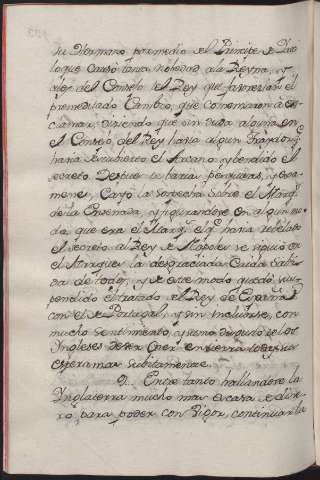 su Hermano por medio el Principe de
lo que causó tanta novedad a la Reyna, y
a los del Consejo del Rey que favorecian el
premeditado Cambio, que comenzaron à ex-
clamar, diciendo que sin duda alguna en
el Consejo del Rey havia algun Traydor q.e
havia descubierto el Arcano, y bendido el
secreto. Despues de varias pesquisas, y exa-
menes, Cayò la sospecha sobre el Marq.s
de la Ensenada, y figurandose en algun mo-
do, que era el Marq.s el q.e havia rebelado
el secreto al Rey de Napoles se siguio en
el Ataque la desgraciada Caida sabi-
da de todos, y de este modo quedó sus-
pendido el tratado del Rey de España
con el de Portugal, y sin incluirse, con
mucho sentimiento, y sumo disgusto de los
Ingleses de ver Caer en tierra todas sus
esperanzas subitamente.
9.. Entre tanto hallandose la
Inglaterra mucho mas escasa de dine-
ro, para poder con vigor, continuar la